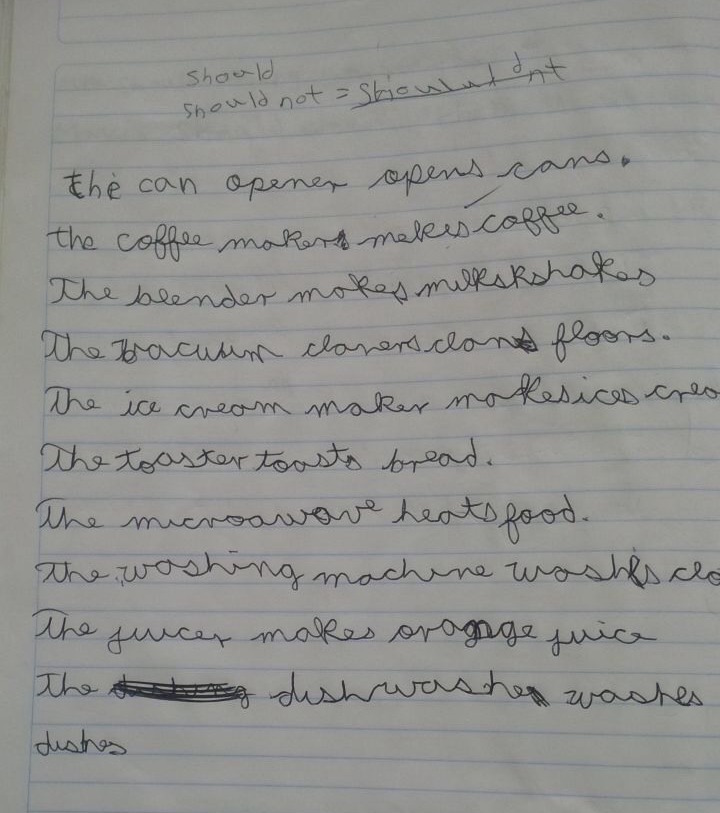 should
should not = shouldnt
the can opener opens cans.
the coffee maker makes coffee.
The blender makes milkskshakes
The vacuum claners clans floors.
The ice cream maker makes ices crea
The toaster toasts bread.
The microawave heats food.
The washing machine washis clo
The juicer makes oragnge juice
The dishwasher washes
dishes